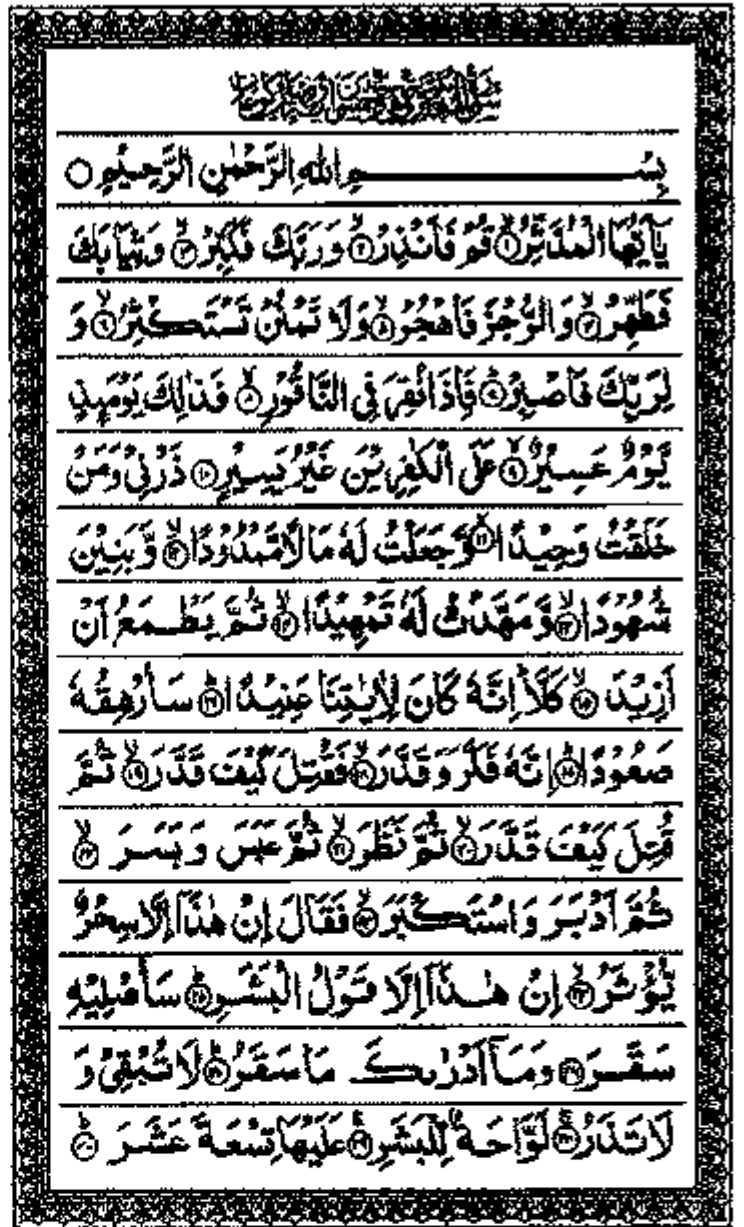 بِسْمِ اللهِ الرَّحْمٰنِ الرَّحِيْمِ ○
يٰۤاَيُّهَا الْمُدَّثِّرُ ۙ۱ قُمْ فَاَنْذِرْ ۙ۲ وَرَبَّكَ فَكَبِّرْ ۙ۳ وَثِيَابَكَ
فَطَهِّرْ ۙ۴ وَالرُّجْزَ فَاهْجُرْ ۙ۵ وَلَا تَمْنُنْ تَسْتَكْثِرُ ۙ۶ وَ
لِرَبِّكَ فَاصْبِرْ ؕ۷ فَاِذَا نُقِرَ فِي النَّاقُوْرِ ۙ۸ فَذٰلِكَ يَوْمَىِٕذٍ
يَّوْمٌ عَسِيْرٌ ۙ۹ عَلَى الْكٰفِرِيْنَ غَيْرُ يَسِيْرٍ ۱۰ ذَرْنِيْ وَمَنْ
خَلَقْتُ وَحِيْدًا ۙ۱۱ وَّجَعَلْتُ لَهٗ مَالًا مَّمْدُوْدًا ۙ۱۲ وَّبَنِيْنَ
شُهُوْدًا ۙ۱۳ وَّمَهَّدْتُّ لَهٗ تَمْهِيْدًا ۙ۱۴ ثُمَّ يَطْمَعُ اَنْ
اَزِيْدَ ۙ۱۵ كَلَّا ؕ اِنَّهٗ كَانَ لِاٰيٰتِنَا عَنِيْدًا ؕ۱۶ سَاُرْهِقُهٗ
صَعُوْدًا ؕ۱۷ اِنَّهٗ فَكَّرَ وَقَدَّرَ ۙ۱۸ فَقُتِلَ كَيْفَ قَدَّرَ ۙ۱۹ ثُمَّ
قُتِلَ كَيْفَ قَدَّرَ ۙ۲۰ ثُمَّ نَظَرَ ۙ۲۱ ثُمَّ عَبَسَ وَبَسَرَ ۙ۲۲
ثُمَّ اَدْبَرَ وَاسْتَكْبَرَ ۙ۲۳ فَقَالَ اِنْ هٰذَاۤ اِلَّا سِحْرٌ
يُّؤْثَرُ ۙ۲۴ اِنْ هٰذَاۤ اِلَّا قَوْلُ الْبَشَرِ ؕ۲۵ سَاُصْلِيْهِ
سَقَرَ ۲۶ وَمَاۤ اَدْرٰىكَ مَا سَقَرُ ؕ۲۷ لَا تُبْقِيْ وَ
لَا تَذَرُ ۚ۲۸ لَوَّاحَةٌ لِّلْبَشَرِ ۚ۲۹ عَلَيْهَا تِسْعَةَ عَشَرَ ؕ۳۰